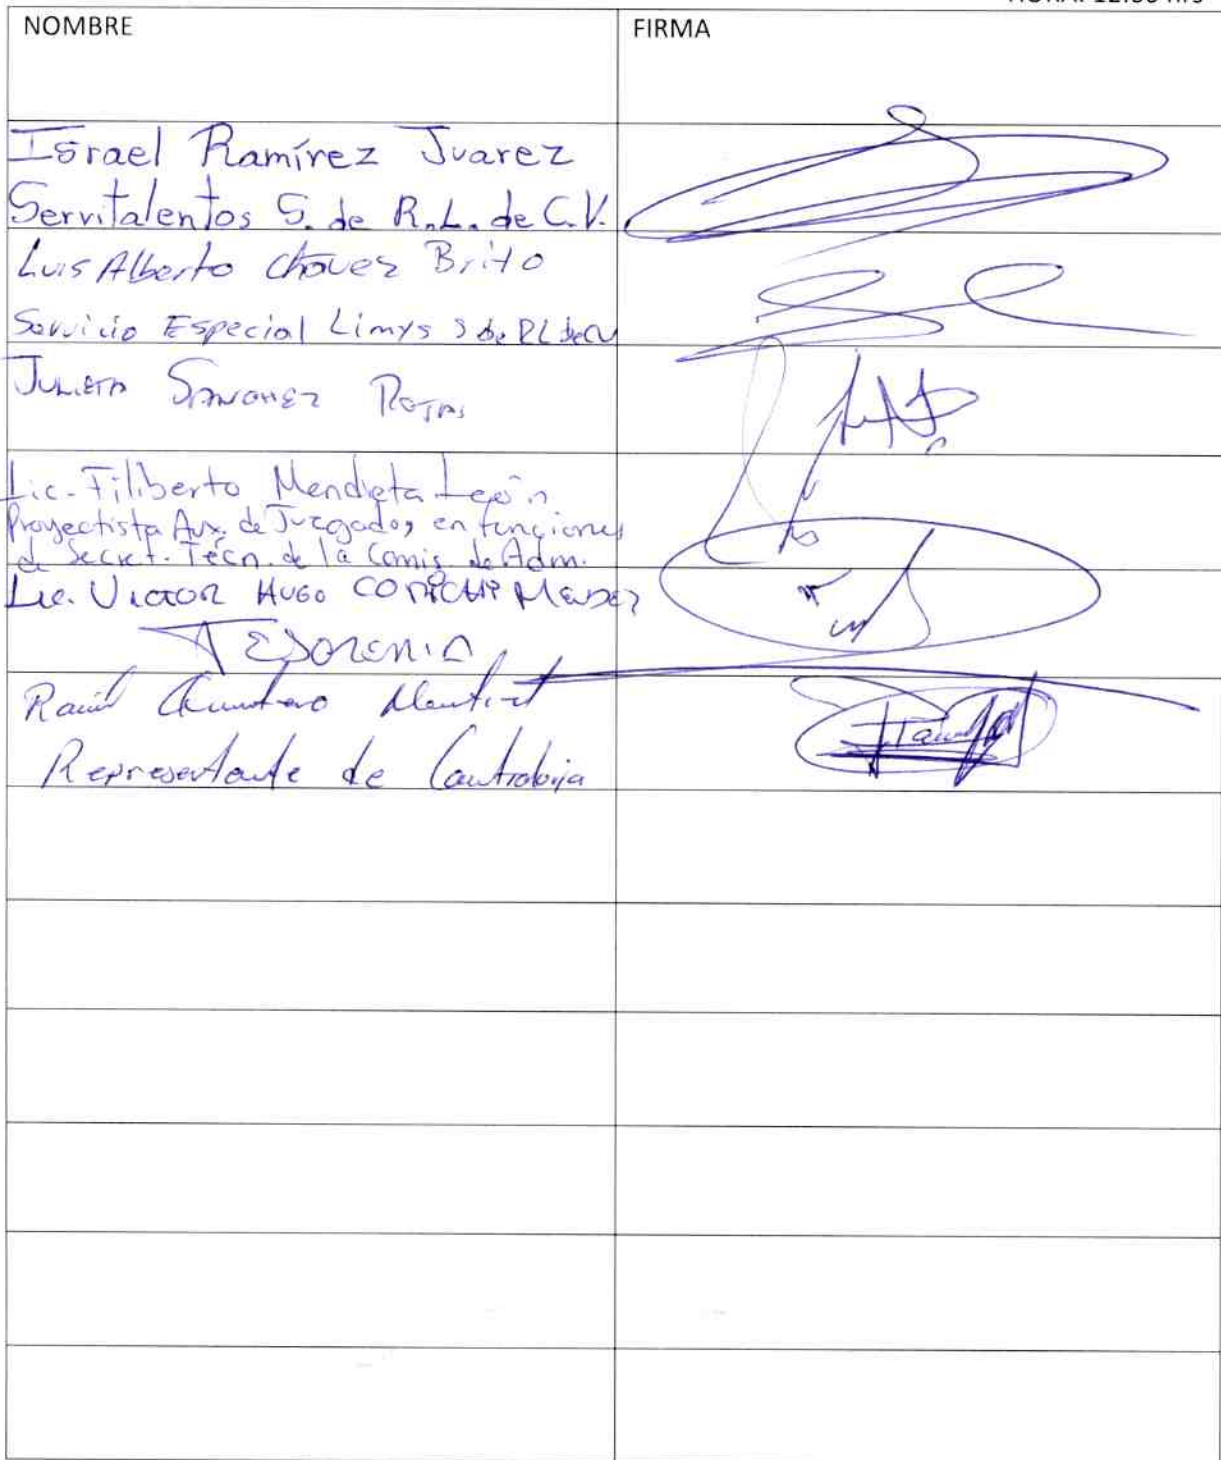 NOMBRE
FIRMA
Israel Ramírez Juarez
Servitalentos S. de R.L. de C.V.
Luis Alberto Chavez Brito
Servicio Especial Limys S de RL de CV
JULIETA SANCHEZ ROJAS
Lic. Filiberto Mendieta León
Proyectista Aux. de Juzgados, en funciones
de Secret. Técn. de la Comis. de Adm.
Lic. VICTOR HUGO MENDEZ
TESORERIA
Raúl
Representante de Contraloría